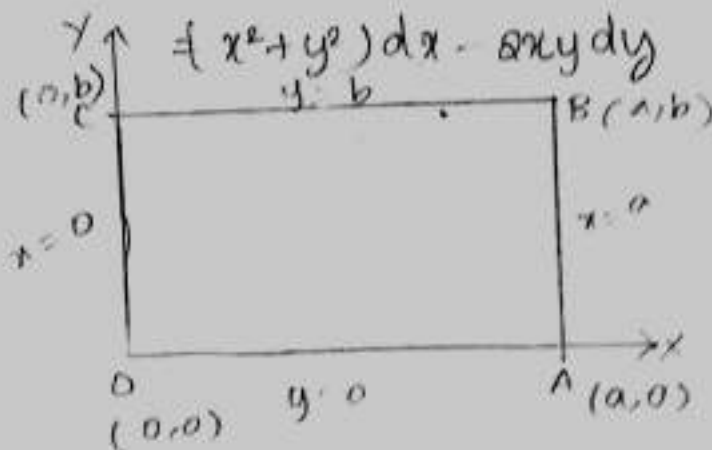 Y =( x² + y² ) dx - 2xy dy
(0,b) C y = b B (a,b)
x = 0 x = a
O y = 0 A (a,0) X
(0,0)